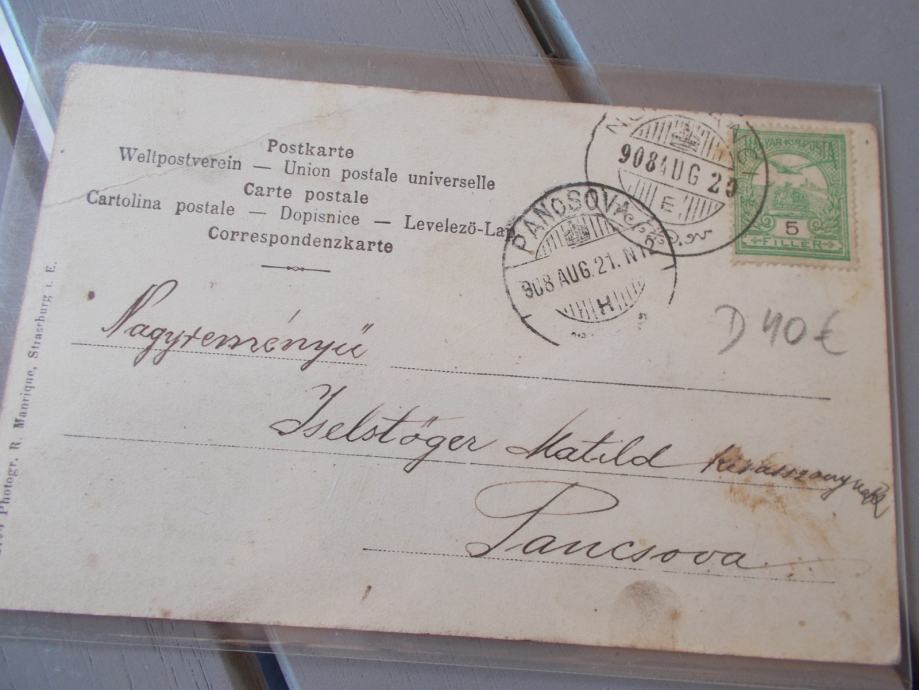 Postkarte
Weltpostverein — Union postale universelle
Carte postale
Cartolina postale — Dopisnice — Levelezö-Lap
Correspondenzkarte
908 AUG 20
E
MAGYAR KIR. POSTA
5
FILLER
PANCSOVA
908 AUG. 21. N
H
D 40€
Nagyreményű
Iselstöger Matild kisasszonynak
Pancsova
Photogr. R. Manrique, Strassburg i. E.